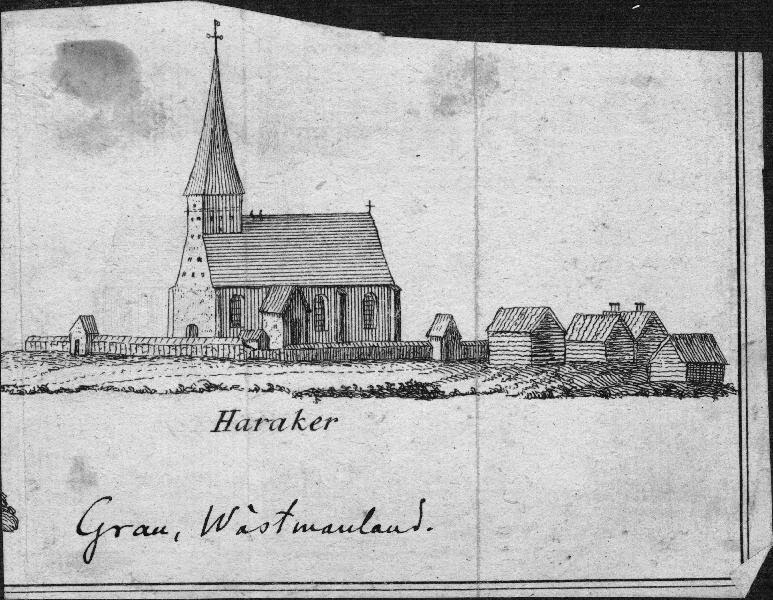 Haraker
Grau, Wästmanland.